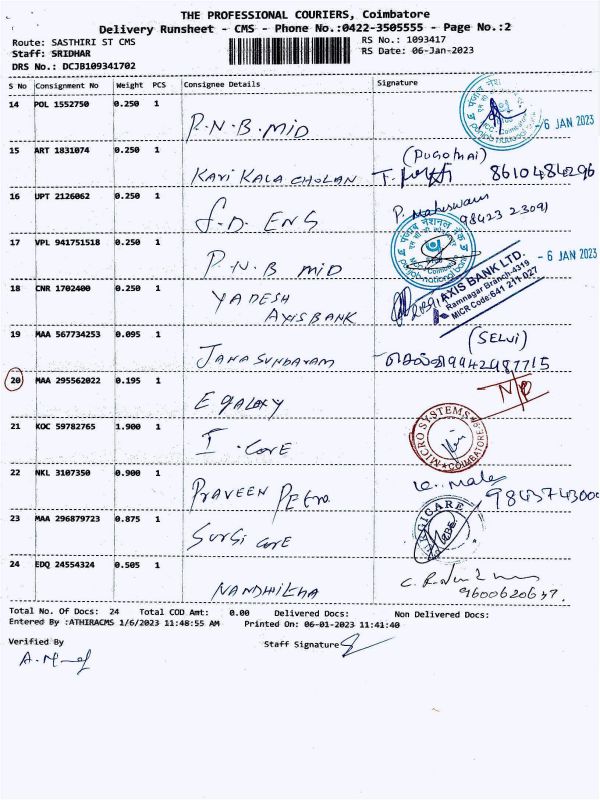 THE PROFESSIONAL COURIERS, Coimbatore
Delivery Runsheet - CMS - Phone No.:0422-3505555 - Page No.:2
Route: SASTHIRI ST CMS
Staff: SRIDHAR
DRS No.: DCJB109341702
RS No.: 1093417
RS Date: 06-Jan-2023
S No Consignment No Weight PCS Consignee Details Signature
14 POL 1552750 0.250 1
P.N.B. MID
- 6 JAN 2023
15 ART 1831074 0.250 1
KAVI KALA CHOLAN 8610484296
16 UPT 2126062 0.250 1
S.D. ENG
P. Maheswari
98423 23091
17 VPL 941751518 0.250 1
P.N.B MID
पंजाब नैशनल बैंक
Coimbatore
punjab national bank
- 6 JAN 2023
18 CNR 1702400 0.250 1
YADESH
AXIS BANK
AXIS BANK LTD.
Ramnagar Branch-4319
MICR Code:641 211 027
19 MAA 567734253 0.095 1
JANA SUNDARAM
(SELVI)
செல்வி 9942987715
20 MAA 295562022 0.195 1
E GALAXY
21 KOC 59782765 1.900 1
I-CORE
MICRO SYSTEMS
COIMBATORE
22 NKL 3107350 0.900 1
PRAVEEN
K. Mala
23 MAA 296879723 0.875 1
SURGI CARE
SURGICARE
24 EDQ 24554324 0.505 1
9600620637.
Total No. Of Docs: 24 Total COD Amt: 0.00 Delivered Docs: Non Delivered Docs:
Entered By :ATHIRACMS 1/6/2023 11:48:55 AM Printed On: 06-01-2023 11:41:40
Verified By
Staff Signature